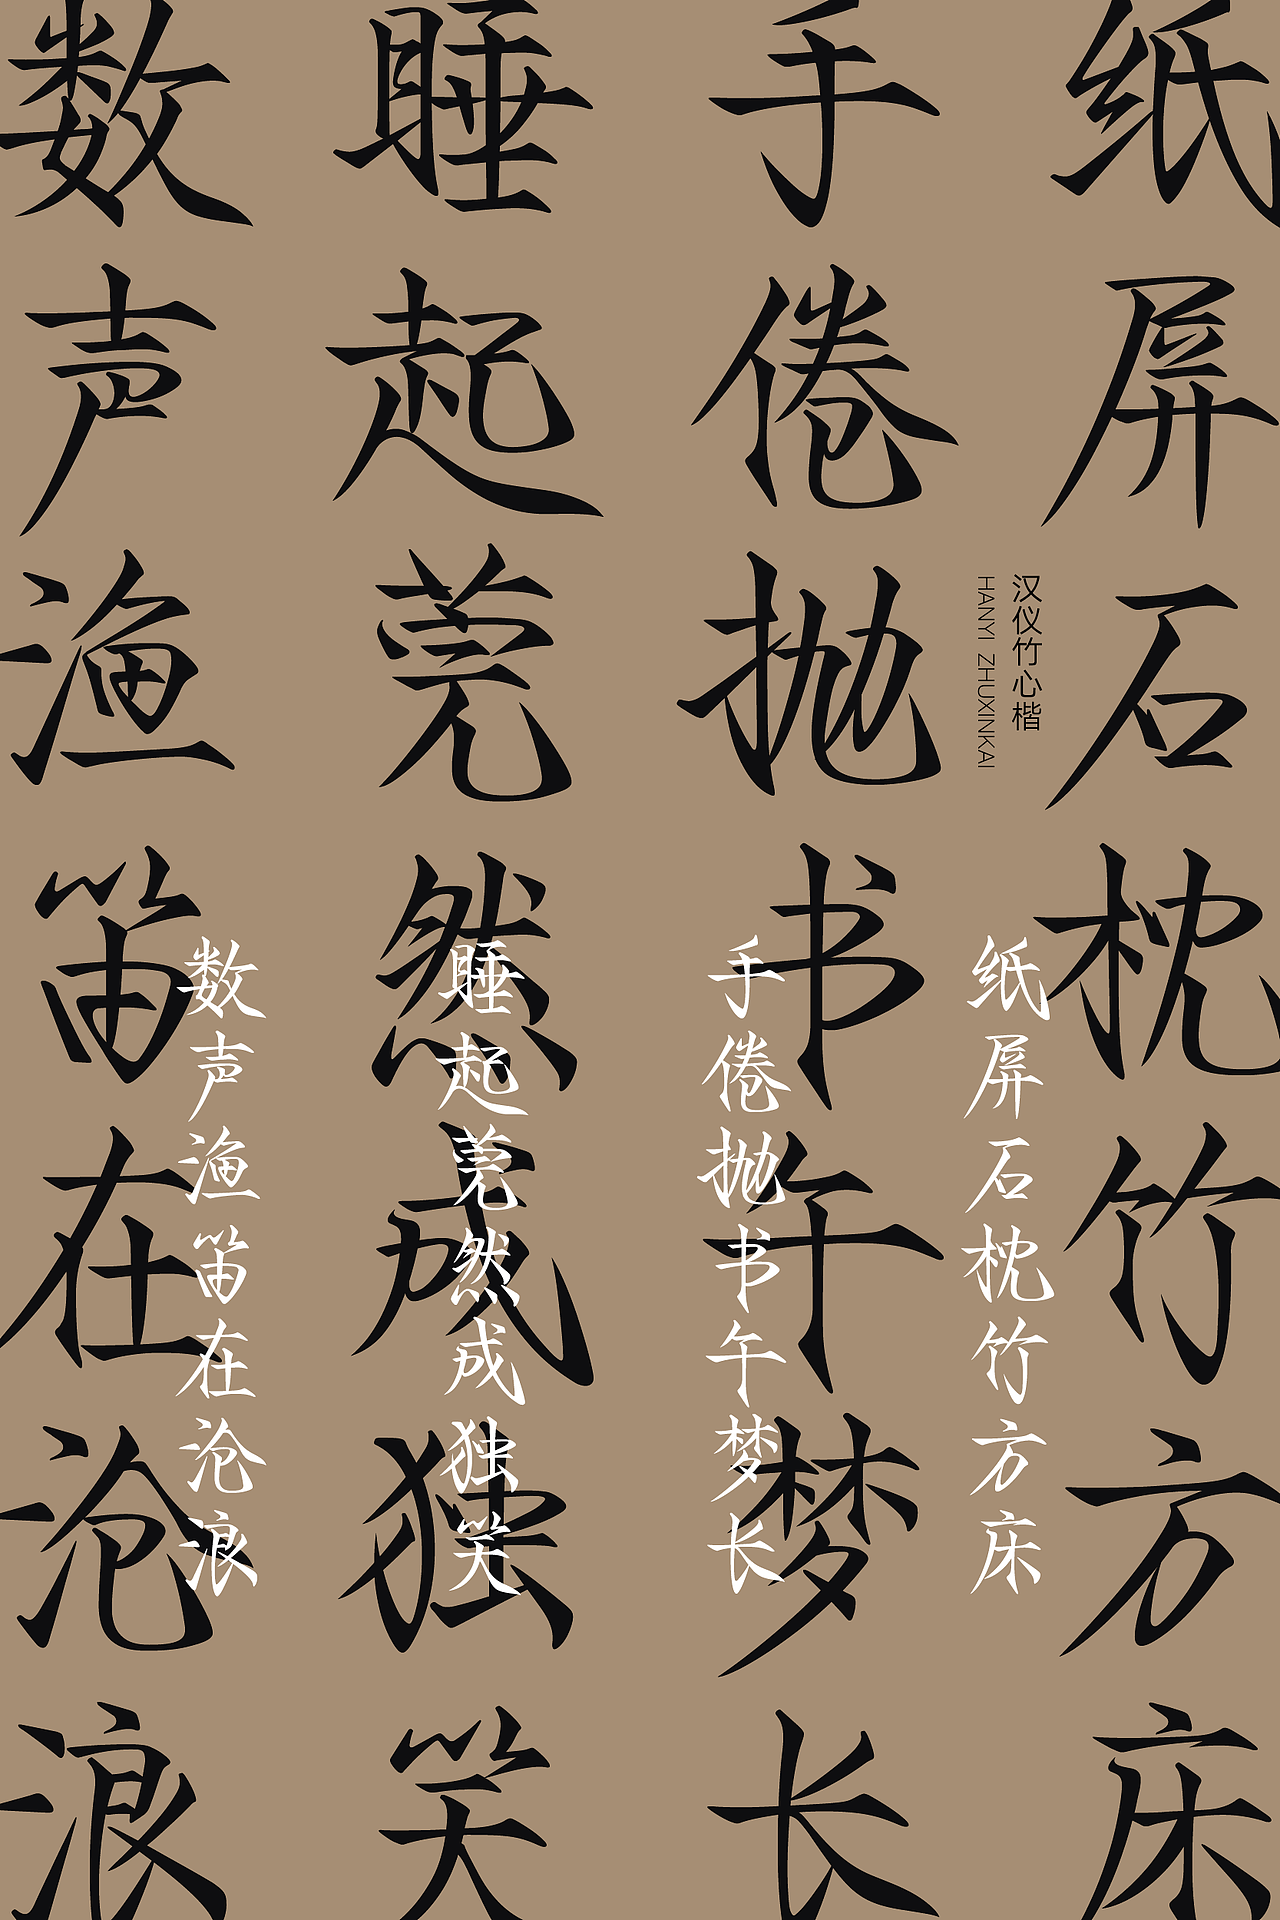 纸屏石枕竹方床
手倦抛书午梦长
睡起莞然成独笑
数声渔笛在沧浪
汉仪竹心楷
HANYI ZHUXINKAI
纸屏石枕竹方床
手倦抛书午梦长
睡起莞然成独笑
数声渔笛在沧浪